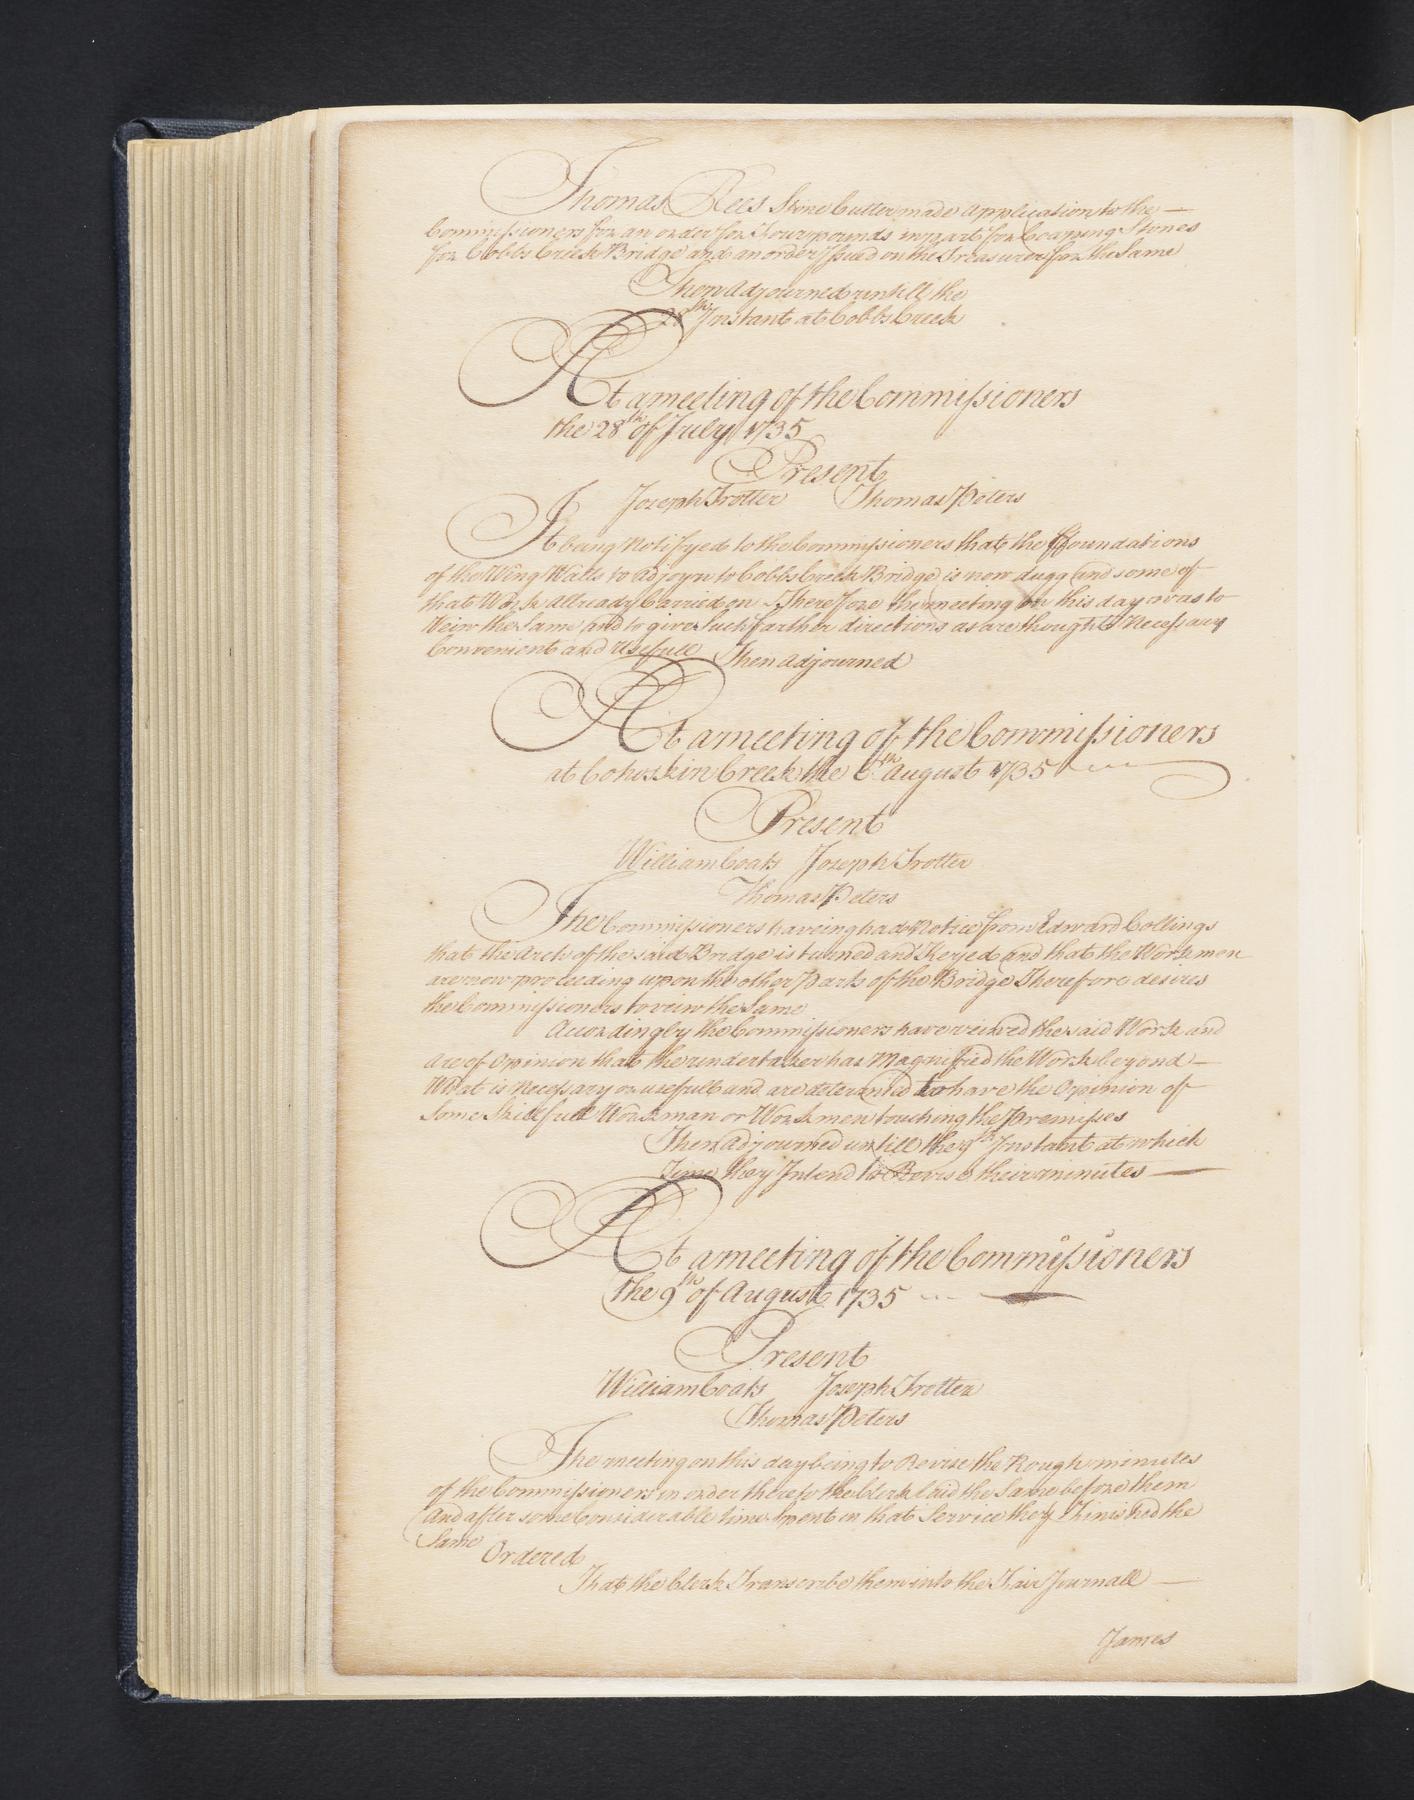 Thomas Rees Stone Cutter made application to the —
Commissioners for an order for Fourpounds in part for Coapings Stones
for Cobbs Creek Bridge and an order Issued on the Treasurer for the Same
Then adjourned untill the
28th Instant at Cobbs Creek
At a meeting of the Commissioners
the 28th of July 1735
Present
Joseph Trotter Thomas Peters
It being Notifyed to the Commissioners that the foundations
of the Wing Walls to adjoyn to Cobbs Creek Bridge is now dugg and some of
that Work allready Carried on Therefore the meeting on this day was to
Veiw the Same and to give Such farther directions as are thought Necessary
Convenient and Usefull Then adjourned
At a meeting of the Commissioners
at Cohoskin Creek the 6th August 1735
Present
William Coats Joseph Trotter
Thomas Peters
The Commissioners haveing had Notice from Edward Collings
that the Arch of the said Bridge is turned and Keyed and that the Workmen
are now proceeding upon the other Parts of the Bridge Therefore desires
the Commissioners to veiw the Same
Accordingly the Commissioners have veiwed the said Work and
are of Opinion that the undertaker has Magnified the Work beyond —
What is Necessary or usefull and are determined to have the Opinion of
Some Skilfull Workman or Workmen touching the Premises
Then Adjourned untill the 9th Instant at which
Time they Intend to Revise their minutes —
At a meeting of the Commissioners
the 9th of August 1735
Present
William Coats Joseph Trotter
Thomas Peters
The meeting on this day being to Revise the Rough minutes
of the Commissioners in order thereto the Clerk laid the Same before them
and after some Considerable time spent in that Service they Finished the
Same
Ordered
That the Clerk Transcribe them into the Fair Journall —
James